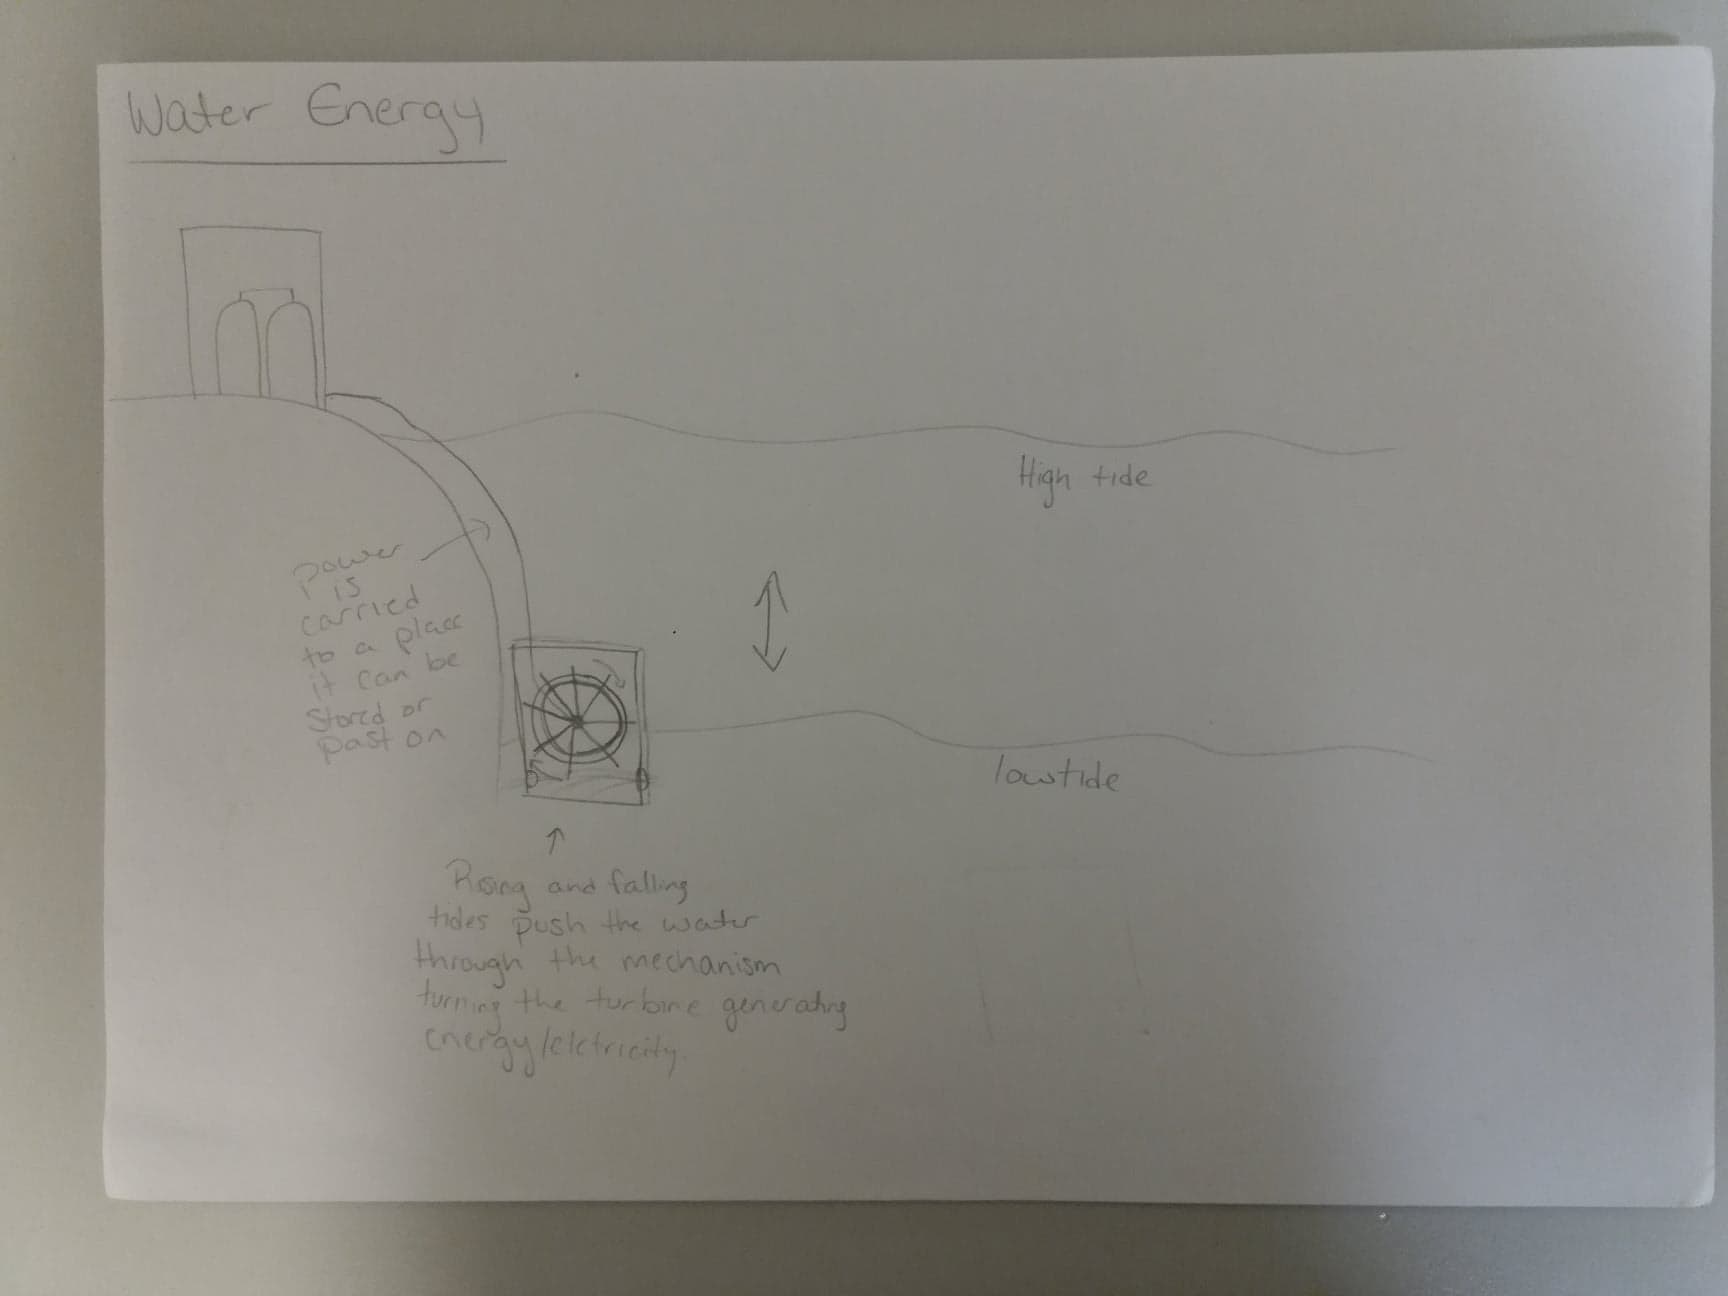 Water Energy
High tide
power
is
carried
to a place
it can be
stored or
past on
lowtide
Rising and falling
tides push the water
through the mechanism
turning the turbine generating
energy/elctricity.